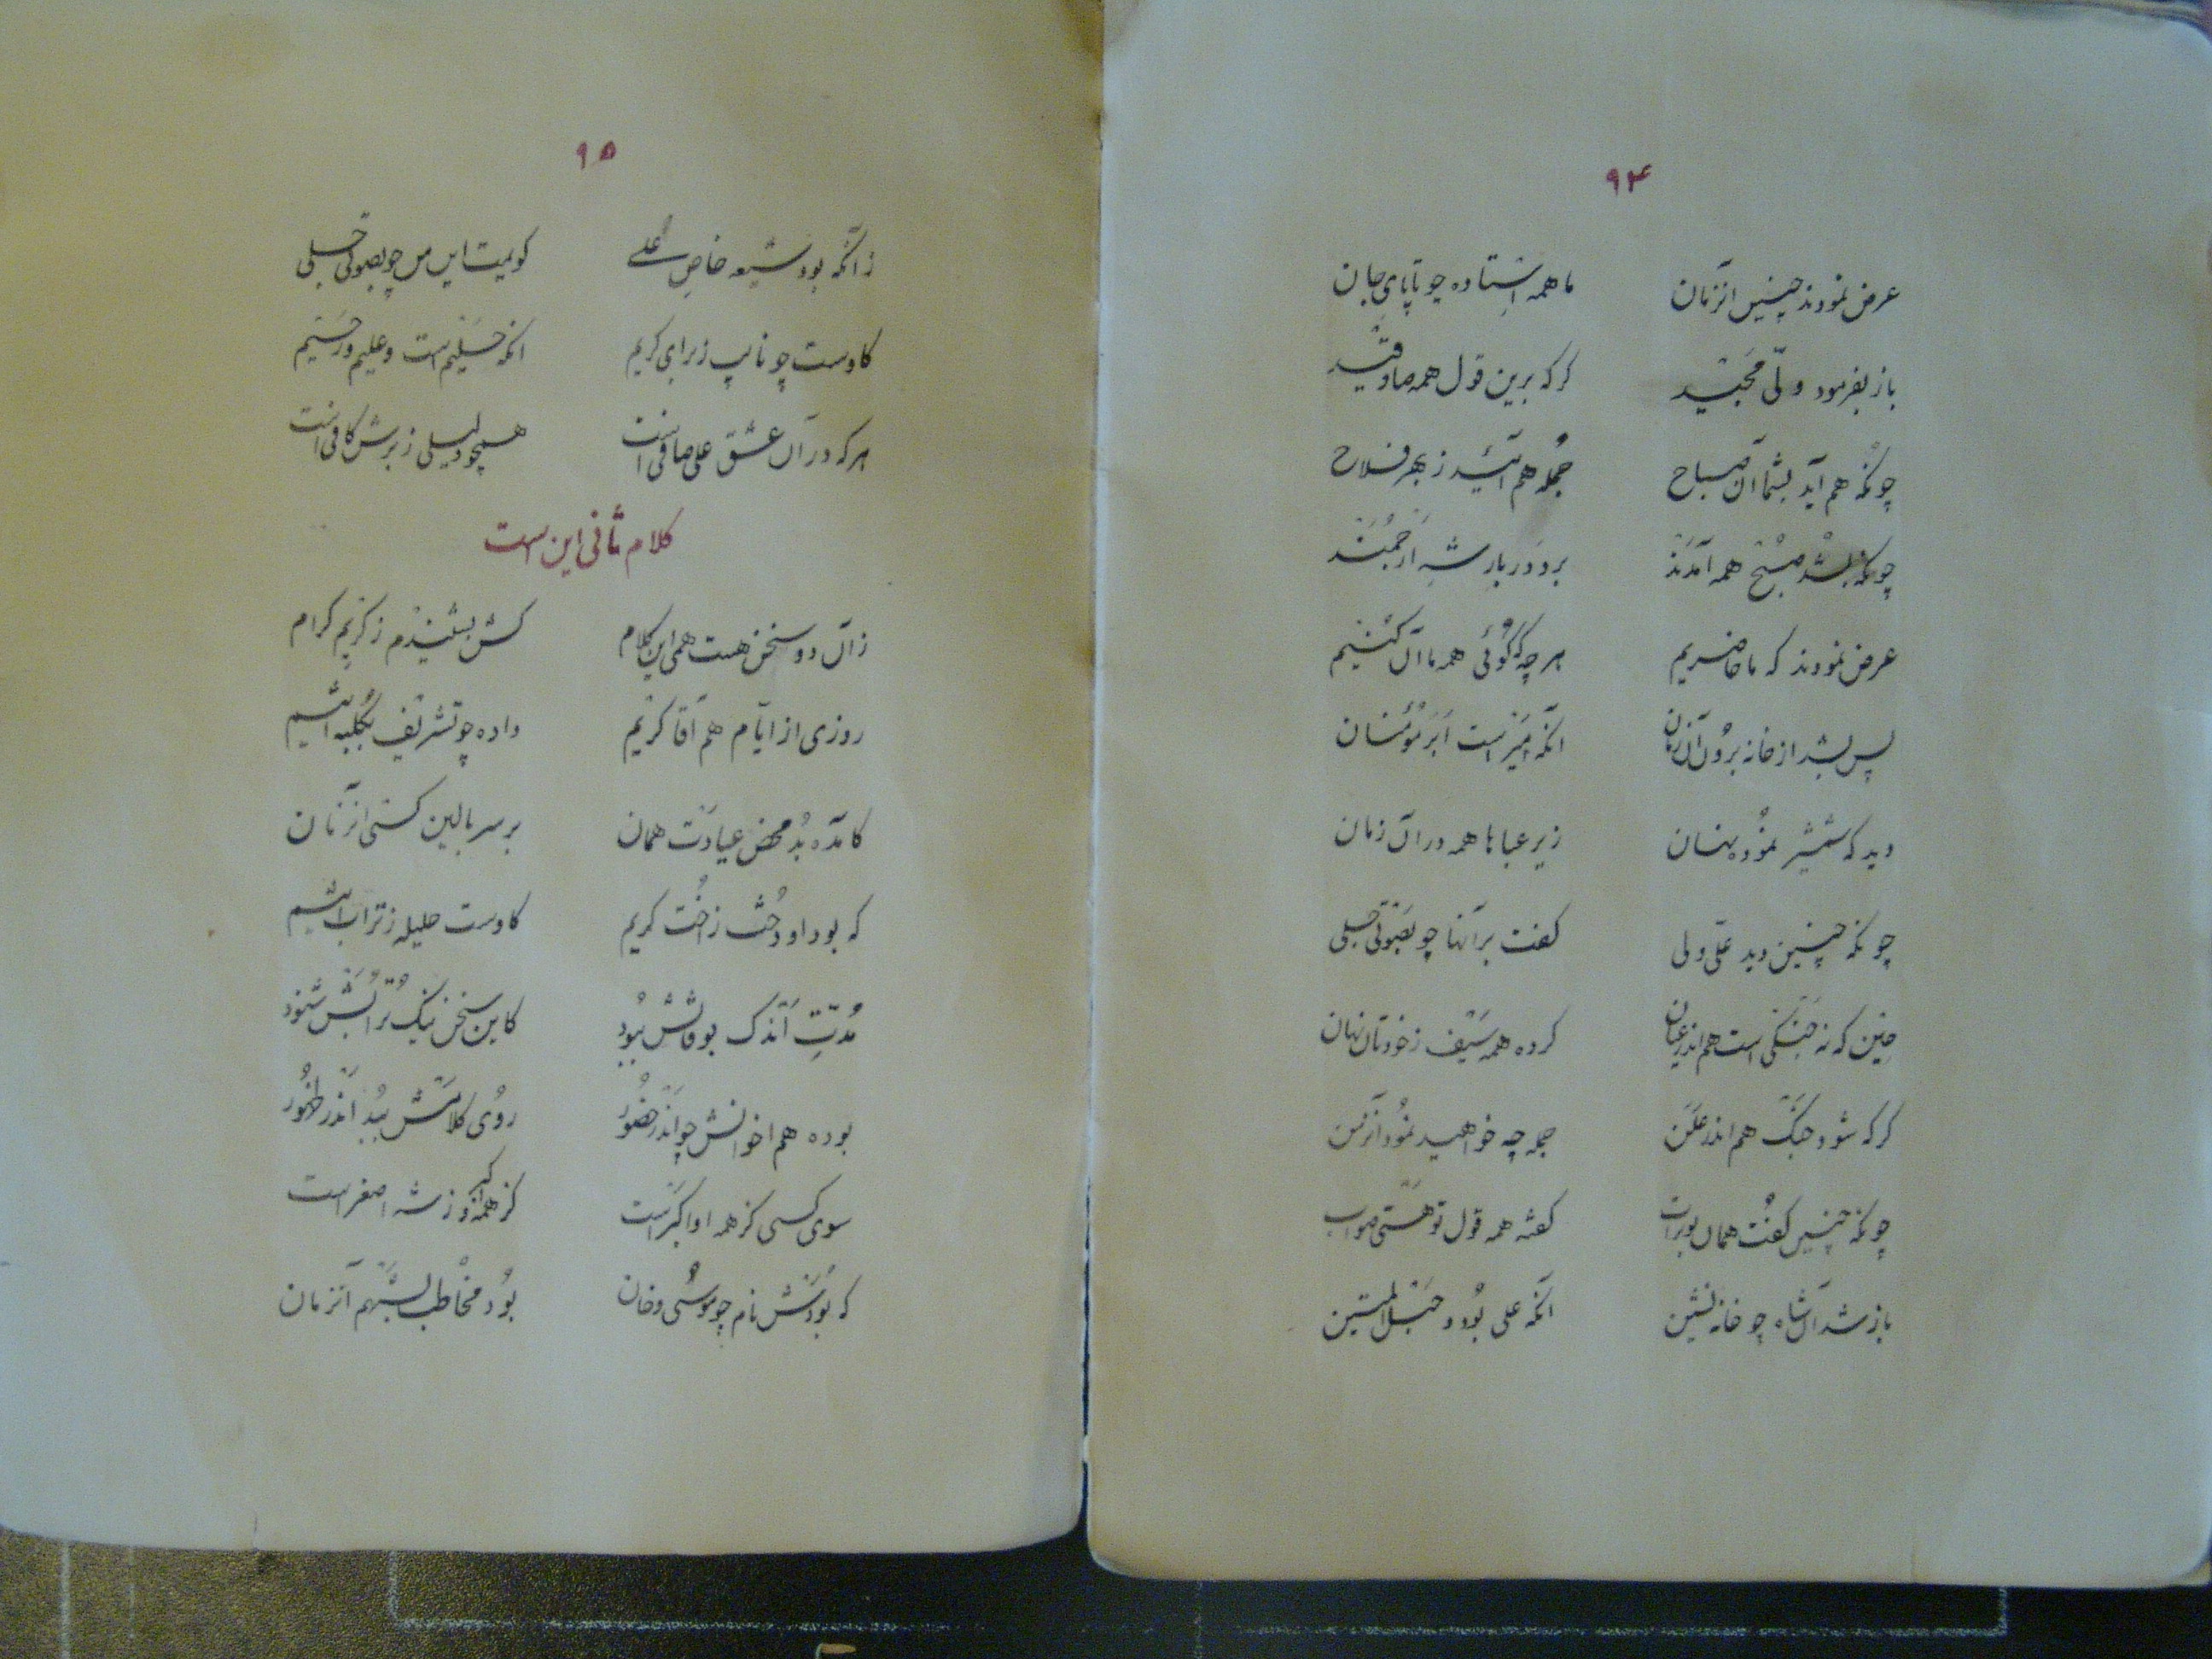 ۹۴
عرض نمودند چنین آنزمان ما همه استاده چو تا پای جان
باز بفرمود ولّی مجید گر که برین قول همه صادقید
چونکه هم آید بشما آن صباح جمله هم آئید ز بهر فلاح
چونکه بشد صبح همه آمدند بر در دربار شه ارجمند
عرض نمودند که ما حاضریم هر چه که گوئی همه ما آن کنیم
پس بشد از خانه برون آن زمان آنکه امیر است ابر مؤمنان
دید که شمشیر نموده نهان زیر عباها همه در آن زمان
چونکه چنین دید علّی ولی گفت بر آنها چو بصوتی جلی
حین که نه جنگی است هم اندر عیان کرده همه سیف ز خودتان نهان
گر که شود جنگ هم اندر علن جمله چه خواهید نمود آنزمن
چونکه چنین گفت همان بوتراب گفته همه قول تو هستی صواب
باز شد آن شاه چو خانه نشین آنکه علی بود و حبل المتین
۹۵
زآنکه بود شیعه خاص علے گویمت این من چو بصوتی جلی
کاوست چو نایب ز برای کریم آنکه حلیم است و علیم و رحیم
هر که در آن عشق علی صافی است همچو دلیلی ز برش کافی است
کلام ثانی این است
زآن دو سخن هست همی این کلام کش بشنیدم ز کریم کرام
روزی از ایّام هم آقا کریم داده چو تشریف بکلبه اثیم
کامده بُد محض عیادت همان بر سر بالین کسی آنزمان
که بود او دخت ز اخت کریم کاوست حلیله ز تراب اثیم
مُدّتِ اندک بوفاتش بود کاین سخن نیک تراٰبش شنود
بوده هم اخوانش چو اندر حضور روی کلامش بُد اندر ظهور
سوی کسی کز همه او اکبر است کز همه او ز شه اصغر است
که بودش نام چو موسی و خان بود مخاطب بشهم آنزمان